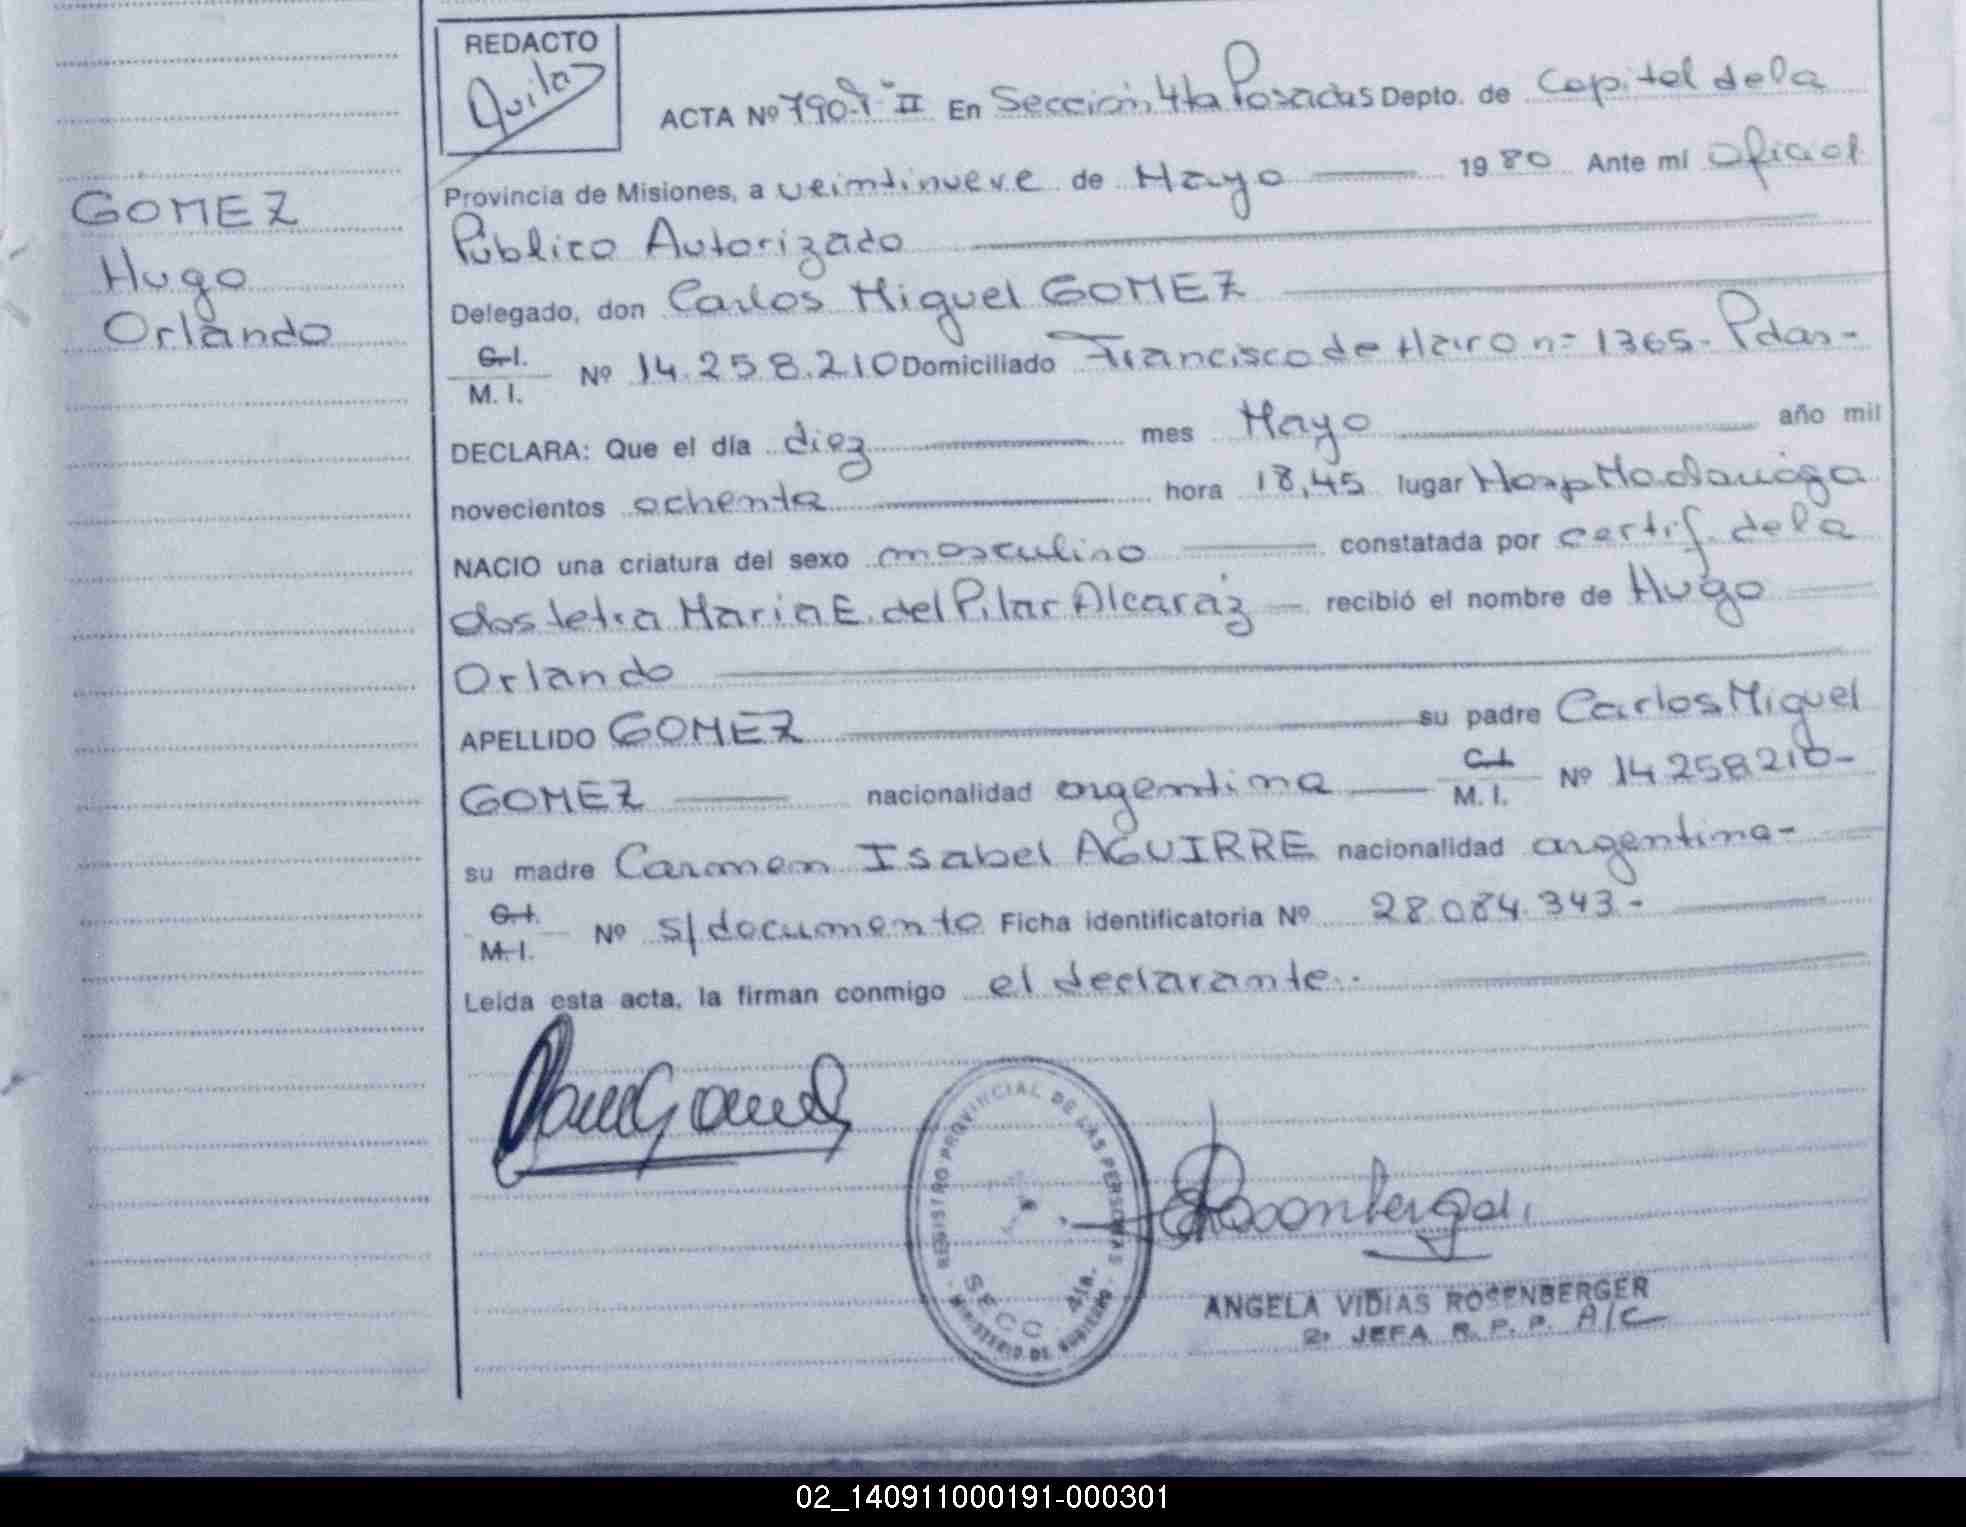 REDACTO
Quila
ACTA Nº 790-Tº II En Sección 4ta Posadas Depto. de Capital de la
Provincia de Misiones, a veintinueve de Mayo 1980 Ante mí Oficial
Público Autorizado
Delegado, don Carlos Miguel GOMEZ
C.I.
M.I. Nº 14.258.210 Domiciliado Francisco de Haro nº 1365. Pdas-
DECLARA: Que el día diez mes Mayo año mil
novecientos ochenta hora 18,45 lugar Hosp Madariaga
NACIO una criatura del sexo masculino constatada por certif. de la
obstetra Maria E. del Pilar Alcaráz recibió el nombre de Hugo
Orlando
APELLIDO GOMEZ su padre Carlos Miguel
GOMEZ nacionalidad argentina C.I. M.I. Nº 14.258.210-
su madre Carmen Isabel AGUIRRE nacionalidad argentina-
C.I.
M.I. Nº s/documento Ficha identificatoria Nº 28.084.343-
Leída esta acta, la firman conmigo el declarante..
GOMEZ
Hugo
Orlando
REGISTRO PROVINCIAL DE LAS PERSONAS
SECC. 4ta.
MINISTERIO DE GOBIERNO
ANGELA VIDIAS ROSENBERGER
2ª JEFA R. P. P. A/C
02_140911000191-000301